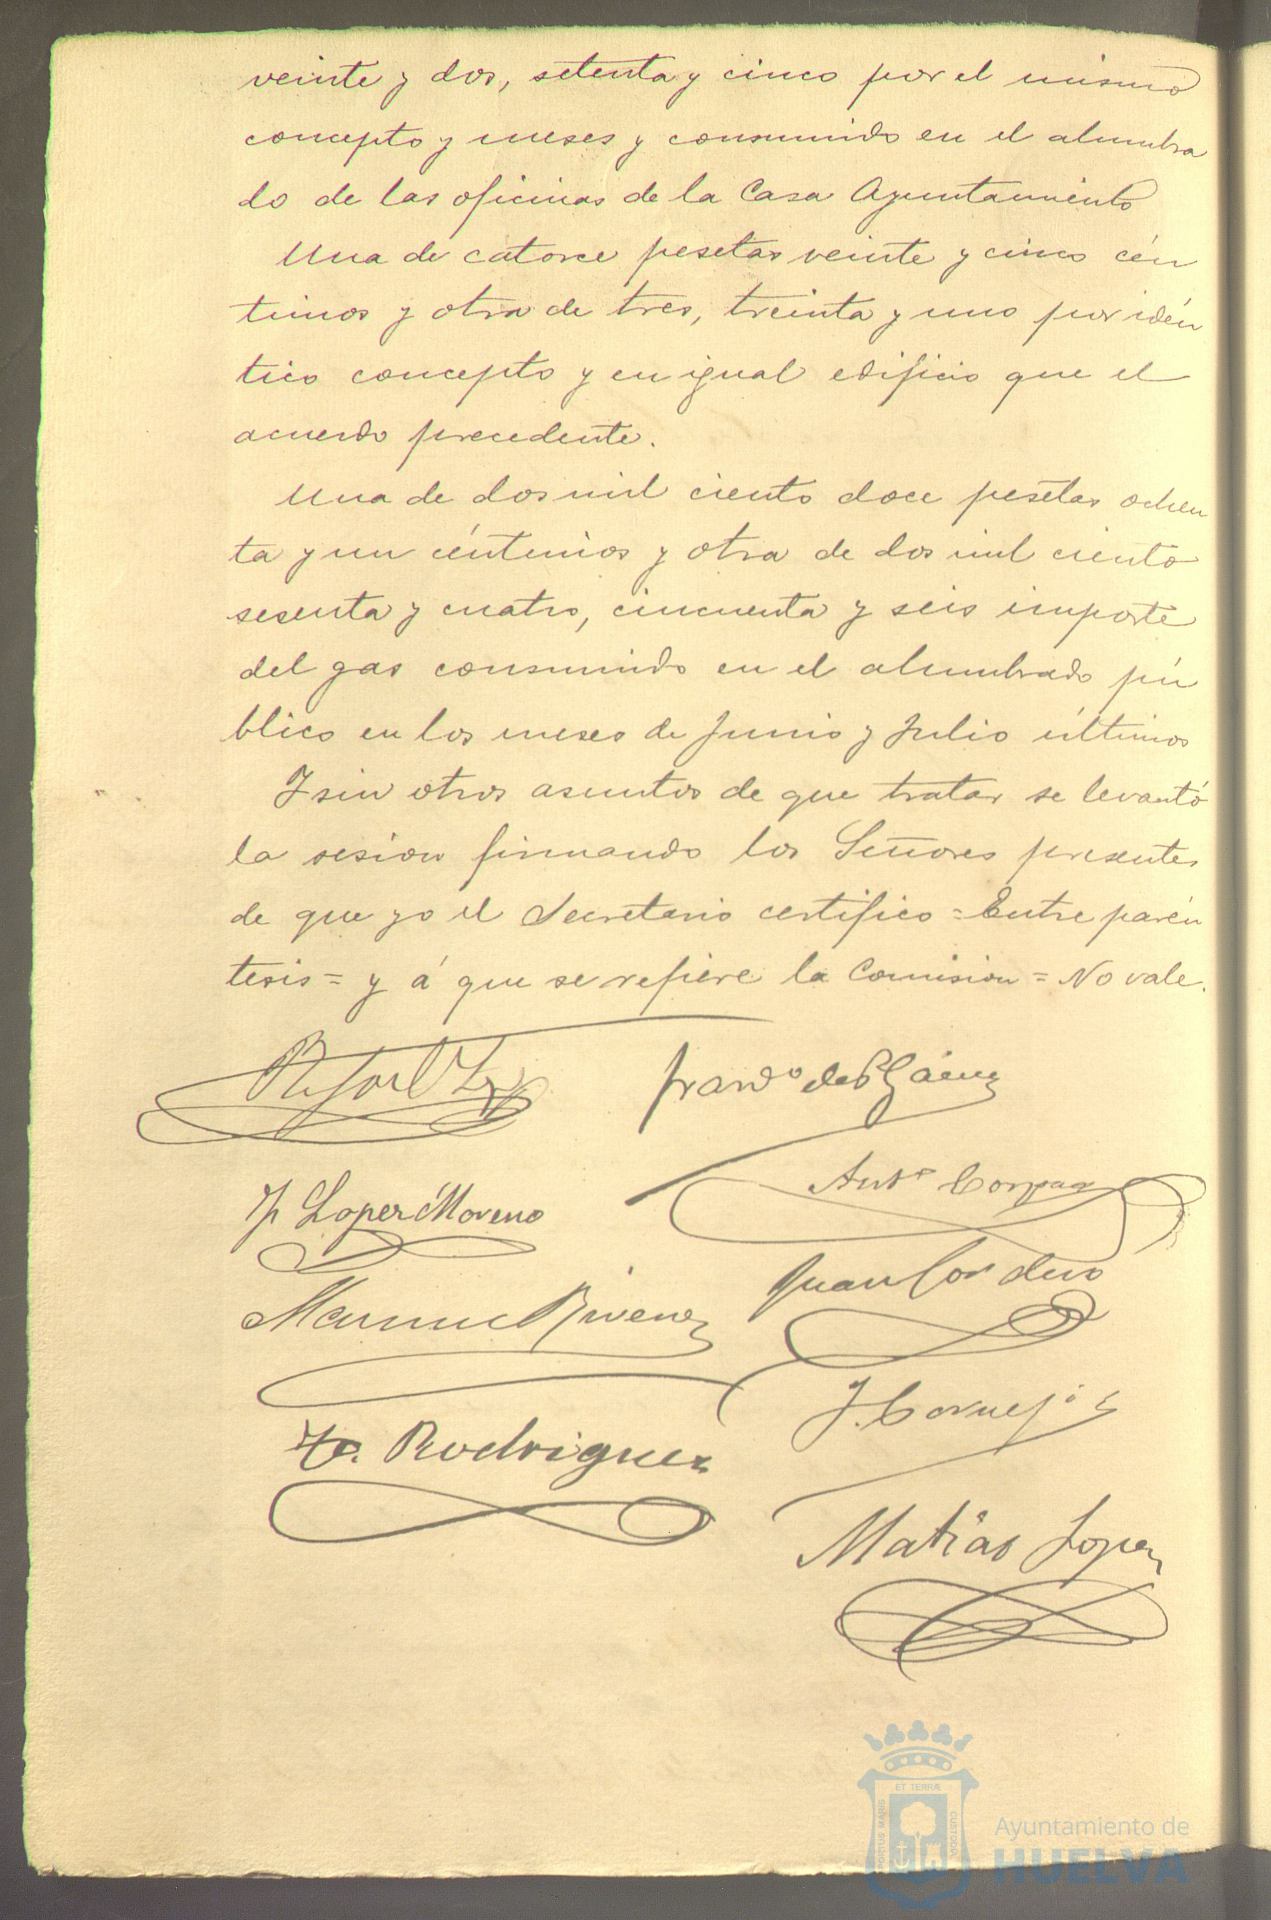 veinte y dos, setenta y cinco por el mismo
concepto y meses y consumido en el alumbra
do de las oficinas de la Casa Ayuntamiento
Una de catorce pesetas veinte y cinco cén
timos y otra de tres, treinta y uno por idén
tico concepto y en igual edificio que el
acuerdo precedente.
Una de dos mil ciento doce pesetas ochen
ta y un céntimos y otra de dos mil ciento
sesenta y cuatro, cincuenta y seis importe
del gas consumido en el alumbrado pú
blico en los meses de Junio y Julio últimos
Y sin otros asuntos de que tratar se levantó
la sesion firmando los Señores presentes
de que yo el Secretario certifico = Entre parén
tesis = y á que se refiere la Comision = No vale.
Lopez Moreno
Juan Cordero
Manuel
J. Cornejo
Rodriguez
Matias Lopez
PORTUS MARIS
ET TERRÆ
CUSTODIA
Ayuntamiento de
HUELVA